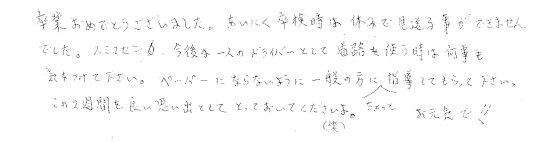 卒業おめでとうございました。あいにく卒検時は休みで見送る事ができません
でした。スミマセン。今後は一人のドライバーとして道路を使う時は何事も
気をつけて下さい。ペーパーにならないように一般の方に指導してもらって下さい。
この2週間を良い思い出としてとっておいてくださいよ。
(笑)
お元気で!!